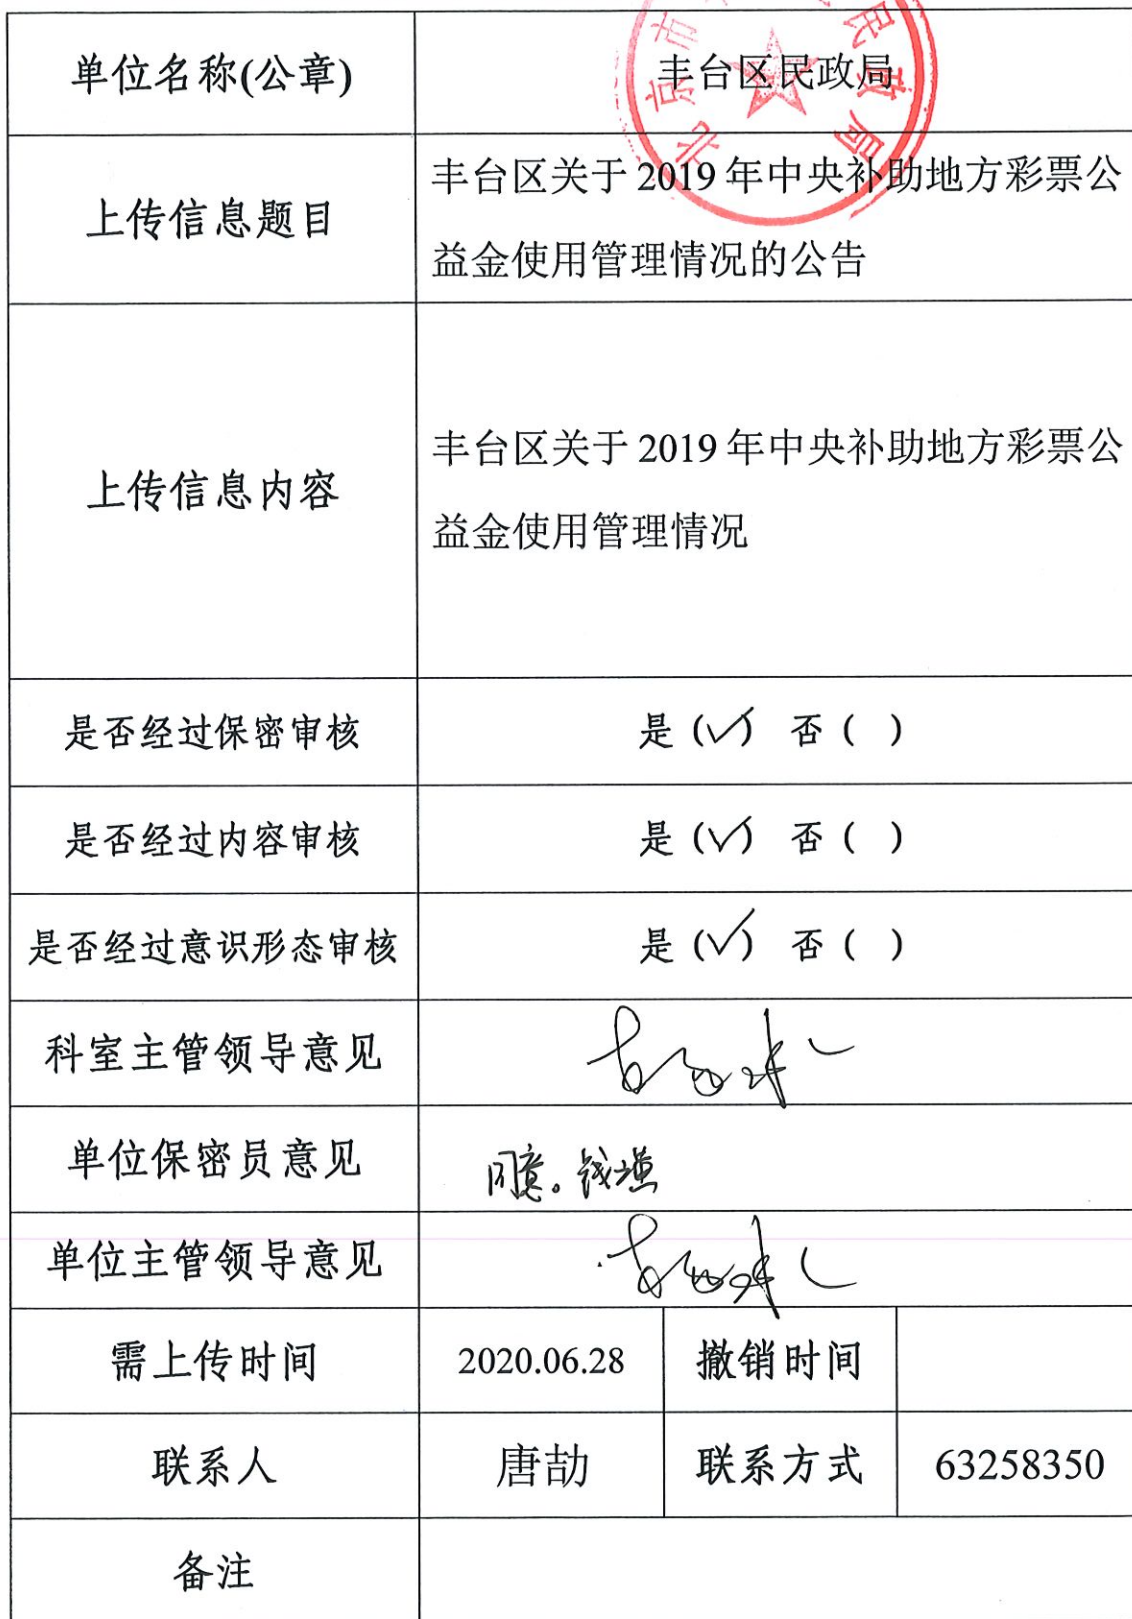 北京市
民政局
单位名称(公章) 丰台区民政局
上传信息题目 丰台区关于 2019 年中央补助地方彩票公
益金使用管理情况的公告
上传信息内容 丰台区关于 2019 年中央补助地方彩票公
益金使用管理情况
是否经过保密审核 是 (✓) 否 ( )
是否经过内容审核 是 (✓) 否 ( )
是否经过意识形态审核 是 (✓) 否 ( )
科室主管领导意见
单位保密员意见 同意。
单位主管领导意见
需上传时间 2020.06.28 撤销时间
联系人 唐劼 联系方式 63258350
备注